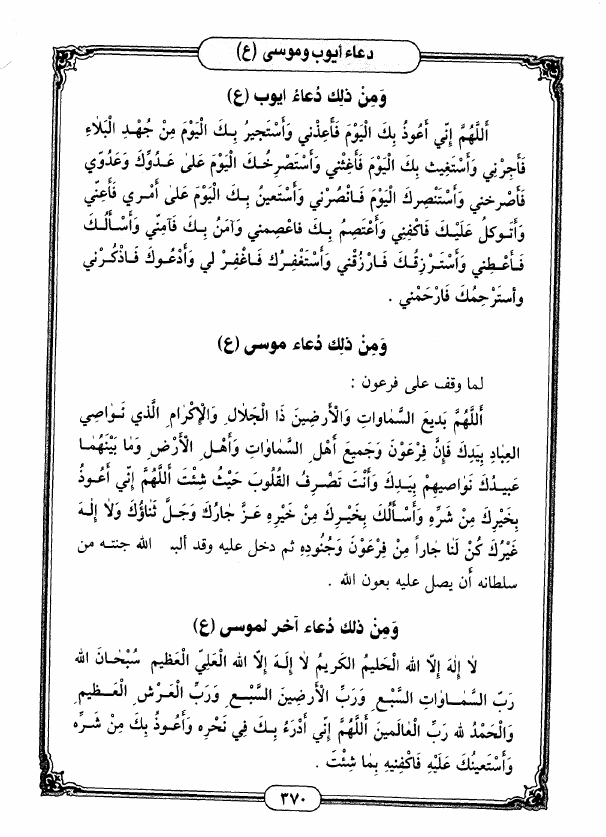 دعاء أيوب وموسى (ع)
وَمِنْ ذلِكَ دُعاءُ ايوب (ع)
أَللَّهُمَّ إنِّي أَعُوذُ بِكَ الْيَوْمَ فَأَعِذْني وَأَسْتَجيرُ بِكَ الْيَوْمَ مِنْ جُهْدِ الْبَلاءِ
فَأَجِرْني وَأَسْتَغيث بِكَ الْيَوْمَ فَأَغِثْني وَأَسْتَصْرِخُكَ الْيَوْمَ عَلىٰ عَدُوِّكَ وَعَدُوّي
فَأصْرِخني وَأَسْتَنْصِرُكَ الْيَوْمَ فَانْصُرْني وَأَسْتَعينُ بِكَ الْيَوْمَ عَلىٰ أَمْري فَأَعِنّي
وَأَتَوكلُ عَلَيْكَ فَاكْفِني وَأَعْتَصِمُ بِكَ فاعْصِمني وَآمَنُ بِكَ فَآمِنّي وَأَسْأَلُكَ
فَأَعْطِني وَأَسْتَرْزِقُكَ فَارْزُقْني وَأَسْتَغْفِرُكَ فَاغْفِرْ لي وَأَدْعُوكَ فَاذْكُرْني
وأستَرْحِمُكَ فَارْحَمْني .
وَمِنْ ذلِكَ دُعاء موسى (ع)
لما وقف على فرعون :
أَللَّهُمَّ بَديعَ السَّماواتِ وَالْأَرضِينَ ذَا الْجَلالِ وَالْإكْرامِ الَّذي نَواصِي
العِبادِ بِيَدِكَ فَإنَّ فِرْعَوْنَ وَجَميعَ أَهْلِ السَّماواتِ وَأَهْلِ الْأَرْضِ وَمَا بَيْنَهُما
عَبيدُكَ نَواصِيهِمْ بِيَدِكَ وَأَنْتَ تَصْرِفُ القُلُوبَ حَيْثُ شِئْتَ أَللَّهُمَّ إنّي أَعُوذُ
بِخَيْرِكَ مِنْ شَرِّهِ وَأَسْأَلُكَ بِخَيْرِكَ مِنْ خَيْرِهِ عَزَّ جَارُكَ وَجَلَّ ثَناؤُكَ وَلا إلٰهَ
غَيْرُكَ كُنْ لَنا جَاراً مِنْ فِرْعَوْنَ وَجُنُودِهِ ثم دخل عليه وقد ألبـ الله جنته من
سلطانه أَن يصل عليه بعون الله .
وَمِنْ ذلك دُعاء آخر لموسى (ع)
لا إلهَ إلاّ الله الْحَليمُ الكَريمُ لا إلَهَ إلاّ الله الْعَليّ الْعَظيم سُبْحَانَ الله
رَبّ السَّمٰواتِ السَّبْعِ وَرَبّ الأَرَضينَ السَّبْعِ وَرَبِّ الْعَرْشِ الْعَظيمِ
وَالْحَمْدُ لله رَبِّ الْعَالَمينَ أَللَّهُمَّ إنّي أَدْرَءُ بِكَ فِي نَحْرِهِ وَأَعُوذُ بِكَ مِنْ شَرِّه
وَأَسْتَعينُكَ عَلَيْهِ فَاكْفِنيهِ بِمَا شِئْتَ .
٣٧٠